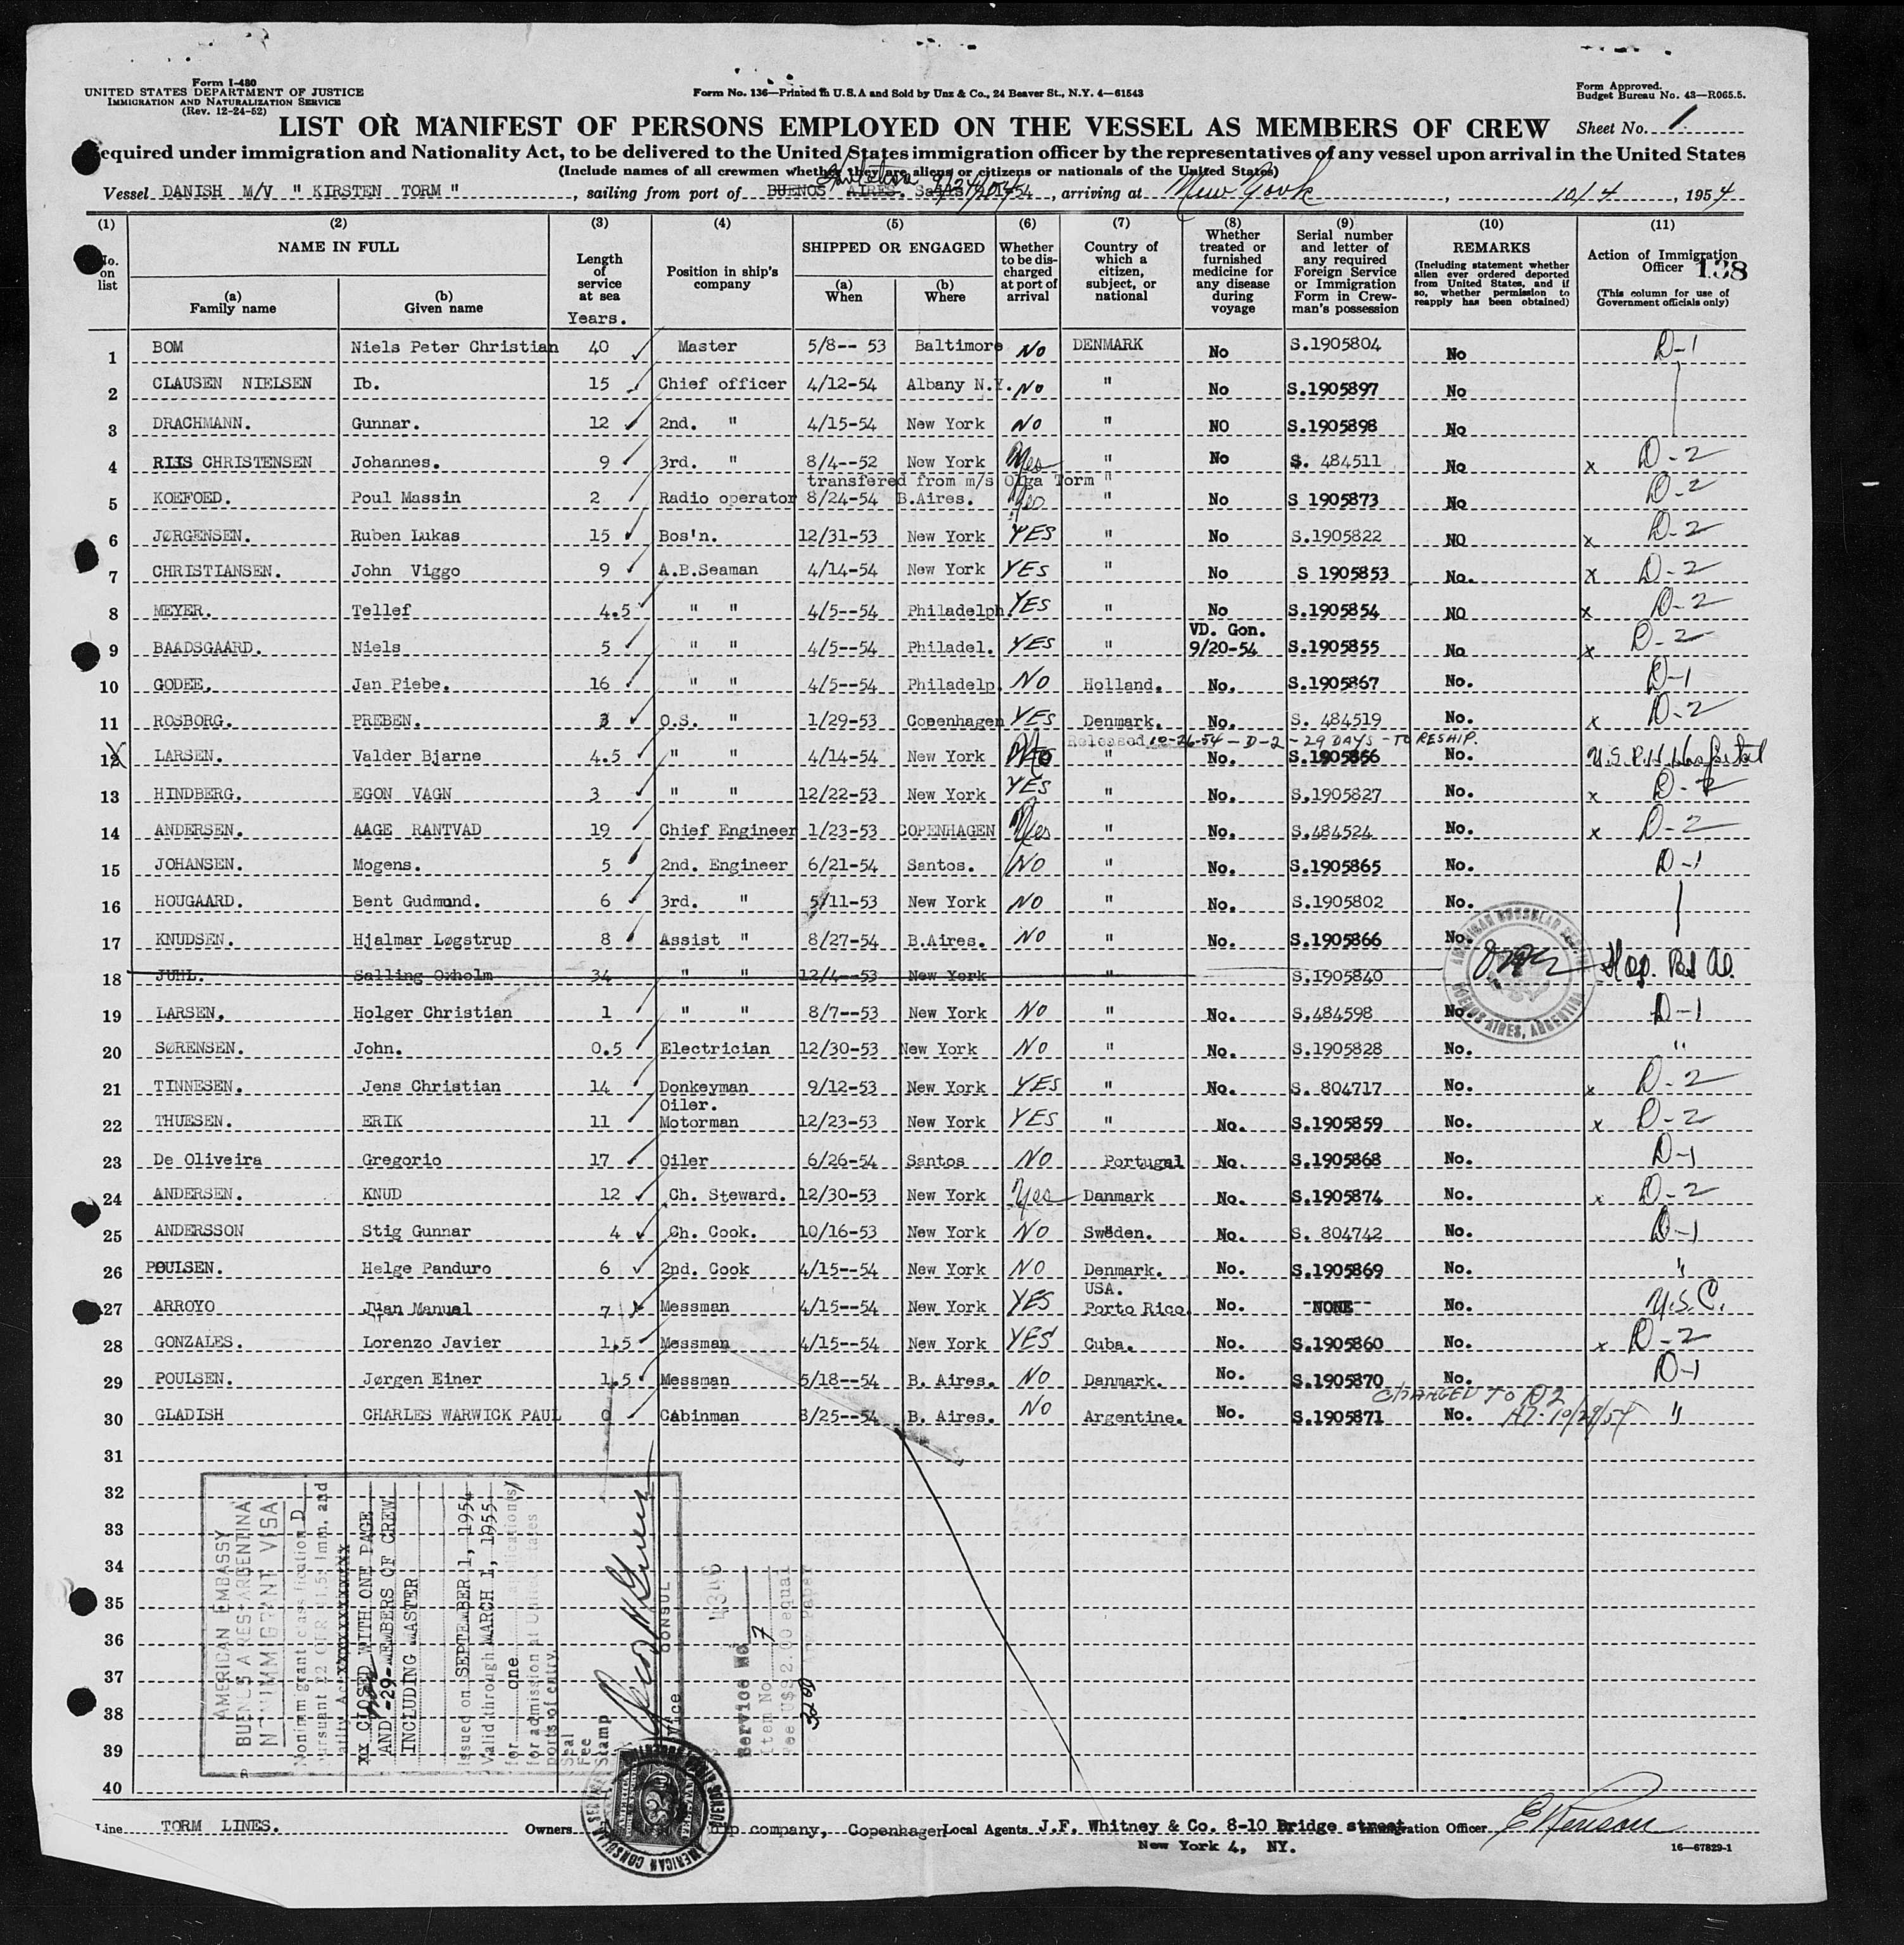 Form I-480
UNITED STATES DEPARTMENT OF JUSTICE
IMMIGRATION AND NATURALIZATION SERVICE
(Rev. 12-24-52)
Form No. 136—Printed in U.S.A and Sold by Unz & Co., 24 Beaver St., N.Y. 4—61543
Form Approved.
Budget Bureau No. 43—R065.5.
LIST OR MANIFEST OF PERSONS EMPLOYED ON THE VESSEL AS MEMBERS OF CREW
Sheet No. 1
equired under immigration and Nationality Act, to be delivered to the United States immigration officer by the representatives of any vessel upon arrival in the United States
(Include names of all crewmen whether they are aliens or citizens or nationals of the United States)
Vessel DANISH M/V " KIRSTEN TORM ", sailing from port of BUENOS AIRES, arriving at New York, 10/4, 1954
(1) (2) (3) (4) (5) (6) (7) (8) (9) (10) (11)
No. on list
NAME IN FULL
(a) Family name
(b) Given name
Length of service at sea
Years.
Position in ship's company
SHIPPED OR ENGAGED
(a) When
(b) Where
Whether to be discharged at port of arrival
Country of which a citizen, subject, or national
Whether treated or furnished medicine for any disease during voyage
Serial number and letter of any required Foreign Service or Immigration Form in Crewman's possession
REMARKS
(Including statement whether alien ever ordered deported from United States, and if so, whether permission to reapply has been obtained)
Action of Immigration Officer 138
(This column for use of Government officials only)
1 BOM Niels Peter Christian 40 Master 5/8-- 53 Baltimore No DENMARK No S.1905804 No D-1
2 CLAUSEN NIELSEN Ib. 15 Chief officer 4/12-54 Albany N.Y. No " No S.1905897 No
3 DRACHMANN. Gunnar. 12 2nd. " 4/15-54 New York NO " NO S.1905898 No
4 RIIS CHRISTENSEN Johannes. 9 3rd. " 8/4--52 New York Yes " No S. 484511 No x D-2
transfered from m/s Olga Torm "
5 KOEFOED. Poul Massin 2 Radio operator 8/24-54 B.Aires. Yes " No S 1905873 No D-2
6 JØRGENSEN. Ruben Lukas 15 Bos'n. 12/31-53 New York YES " No S.1905822 NO x D-2
7 CHRISTIANSEN. John Viggo 9 A.B.Seaman 4/14-54 New York YES " No S 1905853 No. x D-2
8 MEYER. Tellef 4.5 " " 4/5--54 Philadelph. YES " No S.1905854 NO x D-2
VD. Gon.
9 BAADSGAARD. Niels 5 " " 4/5--54 Philadel. YES " 9/20-54 S.1905855 No x D-2
10 GODEE. Jan Piebe. 16 " " 4/5--54 Philadelp. NO Holland. No. S.1905867 No. D-1
11 ROSBORG. PREBEN. 3 O.S. " 1/29-53 Copenhagen YES Denmark. No. S. 484519 No. x D-2
Released 10-26-54 - D-2 - 29 DAYS - TO RESHIP.
12 LARSEN. Valder Bjarne 4.5 " " 4/14-54 New York " No. S.1905856 No. U.S.P.H. Hospital
13 HINDBERG. EGON VAGN 3 " " 12/22-53 New York YES " No. S.1905827 No. x D-2
14 ANDERSEN. AAGE RANTVAD 19 Chief Engineer 1/23-53 COPENHAGEN Yes " No. S.484524 No. x D-2
15 JOHANSEN. Mogens. 5 2nd. Engineer 6/21-54 Santos. NO " No. S.1905865 No. D-1
16 HOUGAARD. Bent Gudmund. 6 3rd. " 5/11-53 New York NO " No. S.1905802 No.
17 KNUDSEN. Hjalmar Løgstrup 8 Assist " 8/27-54 B.Aires. NO " No. S.1905866 No.
18 JUHL. Salling Oxholm 34 " " 12/4--53 New York " S.1905840
19 LARSEN. Holger Christian 1 " " 8/7--53 New York NO " No. S.484598 No. D-1
20 SØRENSEN. John. 0.5 Electrician 12/30-53 New York NO " No. S.1905828 No. "
21 TINNESEN. Jens Christian 14 Donkeyman 9/12-53 New York YES " No. S. 804717 No. x D-2
Oiler.
22 THUESEN. ERIK 11 Motorman 12/23-53 New York YES " No. S.1905859 No. x D-2
23 De Oliveira Gregorio 17 Oiler 6/26-54 Santos NO Portugal No. S.1905868 No. D-1
24 ANDERSEN. KNUD 12 Ch. Steward. 12/30-53 New York Yes Danmark No. S.1905874 No. x D-2
25 ANDERSSON Stig Gunnar 4 Ch. Cook. 10/16-53 New York NO Sweden. No. S. 804742 No. D-1
26 POULSEN. Helge Panduro 6 2nd. Cook 4/15--54 New York NO Denmark. No. S.1905869 No. "
USA.
27 ARROYO Juan Manual 7 Messman 4/15--54 New York YES Porto Rico. No. -NONE-- No. U.S.C.
28 GONZALES. Lorenzo Javier 1.5 Messman 4/15--54 New York YES Cuba. No. S.1905860 No. x D-2
29 POULSEN. Jørgen Einer 1.5 Messman 5/18--54 B. Aires. NO Danmark. No. S.1905870 No. D-1
CHANGED TO D2
30 GLADISH CHARLES WARWICK PAUL 0 Cabinman 8/25--54 B. Aires. NO Argentine. No. S.1905871 No. 10/28/54 "
31
32
33
34
35
36
37
38
39
40
AMERICAN EMBASSY
BUENOS AIRES ARGENTINA
NONIMMIGRANT VISA
Nonimmigrant classification D
xx CLOSED WITH ONE PAGE
AND -29- MEMBERS OF CREW
INCLUDING MASTER
Issued on SEPTEMBER 1, 1954
Valid through MARCH 1, 1955
for one application(s)
for admission at United States
ports of entry.
Seal
Fee
Stamp
Vice CONSUL
Service No 4346
Item No. 7
Fee U$S 2.00 equal
BUENOS AIRES, ARGENTINA
Line TORM LINES. Owners company, Copenhagen Local Agents J.F. Whitney & Co. 8-10 Bridge street Immigration Officer
New York 4, NY.
16—67829-1